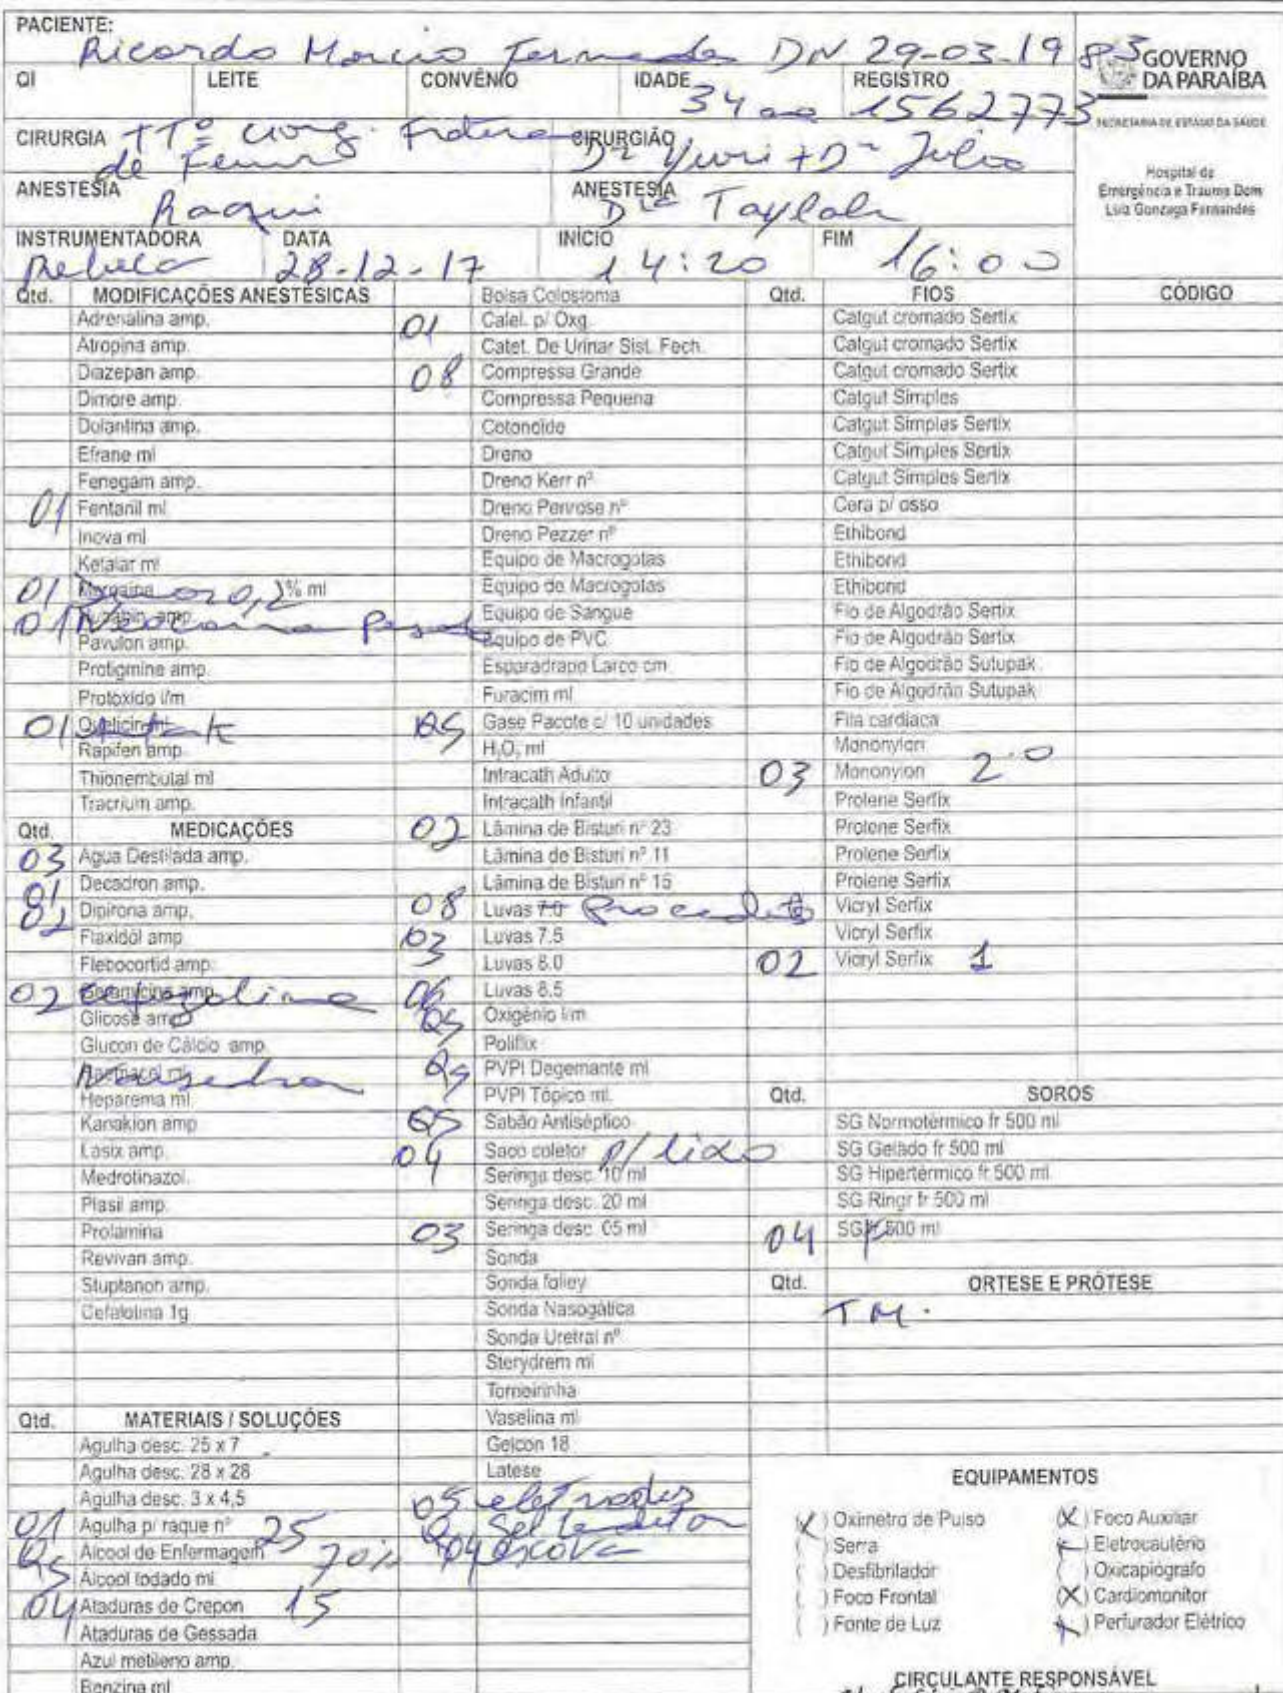 PACIENTE: Ricardo Marcio Fernandes DN 29-03-1983
GOVERNO DA PARAÍBA
SECRETARIA DE ESTADO DA SAÚDE
Hospital de
Emergência e Trauma Dom
Luiz Gonzaga Fernandes
QI LEITE CONVÊNIO IDADE 34 REGISTRO 1562773
CIRURGIA TTº cirurg. Fratura CIRURGIÃO
de Femur Dr Yuri + Dr Julio
ANESTESIA Raqui ANESTESIA Drª Taylala
INSTRUMENTADORA Rebeca DATA 28-12-17 INÍCIO 14:20 FIM 16:00
Qtd. MODIFICAÇÕES ANESTÉSICAS
Adrenalina amp.
Atropina amp.
Diazepan amp.
Dimore amp.
Dolantina amp.
Efrane ml
Fenegam amp.
01 Fentanil ml
Inova ml
Ketalar ml
01 0,2 % ml
01 Neocaina Pesada
Pavulon amp.
Protigmine amp.
Protóxido l/m
01 Quelicin ml
Rapifen amp.
Thionembutal ml
Tracrium amp.
Qtd. MEDICAÇÕES
03 Agua Destilada amp.
01 Decadron amp.
02 Dipirona amp.
Flaxidol amp
Flebocortid amp.
02 Geramicina amp. Cefazolina
Glicose amp
Glucon de Cálcio amp.
Nausedron
Heparema ml
Kanakion amp
Lasix amp.
Medrotinazol.
Plasil amp.
Prolamina
Revivan amp.
Stuptanon amp.
Cefalotina 1g
Qtd. MATERIAIS / SOLUÇÕES
Agulha desc. 25 x 7
Agulha desc. 28 x 28
Agulha desc. 3 x 4,5
01 Agulha p/ raque nº 25
Qs Álcool de Enfermagem 70%
Álcool Iodado ml
04 Ataduras de Crepon 15
Ataduras de Gessada
Azul metileno amp.
Benzina ml
Bolsa Colostomia
01 Catet. p/ Oxg
Catet. De Urinar Sist. Fech.
08 Compressa Grande
Compressa Pequena
Cotonoide
Dreno
Dreno Kerr nº
Dreno Penrose nº
Dreno Pezzer nº
Equipo de Macrogotas
Equipo de Macrogotas
Equipo de Sangue
Equipo de PVC
Esparadrapo Larco cm
Furacim ml
Qs Gase Pacote c/ 10 unidades
H₂O₂ ml
Intracath Adulto
Intracath Infantil
02 Lâmina de Bisturi nº 23
Lâmina de Bisturi nº 11
Lâmina de Bisturi nº 15
08 Luvas 7.0
03 Luvas 7.5
Luvas 8.0
06 Luvas 8.5
Qs Oxigênio l/m
Poliflix
Qs PVPI Degemante ml
PVPI Tópico ml.
Qs Sabão Antiséptico
04 Saco coletor p/ lixo
Seringa desc. 10 ml
Seringa desc. 20 ml
03 Seringa desc. 05 ml
Sonda
Sonda folley
Sonda Nasogática
Sonda Uretral nº
Sterydrem ml
Torneirinha
Vaselina ml
Gelcon 18
Latese
05 eletrodos
04 escova
Qtd. FIOS CÓDIGO
Catgut cromado Sertix
Catgut cromado Sertix
Catgut cromado Sertix
Catgut Simples
Catgut Simples Sertix
Catgut Simples Sertix
Catgut Simples Sertix
Cera p/ osso
Ethibond
Ethibond
Ethibond
Fio de Algodrão Sertix
Fio de Algodrão Sertix
Fio de Algodrão Sutupak
Fio de Algodrão Sutupak
Fita cardiaca
Mononylon
03 Mononylon 2.0
Prolene Serfix
Prolene Serfix
Prolene Serfix
Prolene Serfix
Vicryl Serfix
Vicryl Serfix
02 Vicryl Serfix 1
Qtd. SOROS
SG Normotérmico fr 500 ml
SG Gelado fr 500 ml
SG Hipertérmico fr 500 ml
SG Ringr fr 500 ml
04 SG fr 500 ml
Qtd. ORTESE E PRÓTESE
T M.
EQUIPAMENTOS
(X) Oxímetro de Pulso (X) Foco Auxiliar
( ) Serra (X) Eletrocautério
( ) Desfibrilador ( ) Oxicapiógrafo
( ) Foco Frontal (X) Cardiomonitor
( ) Fonte de Luz (X) Perfurador Elétrico
CIRCULANTE RESPONSÁVEL